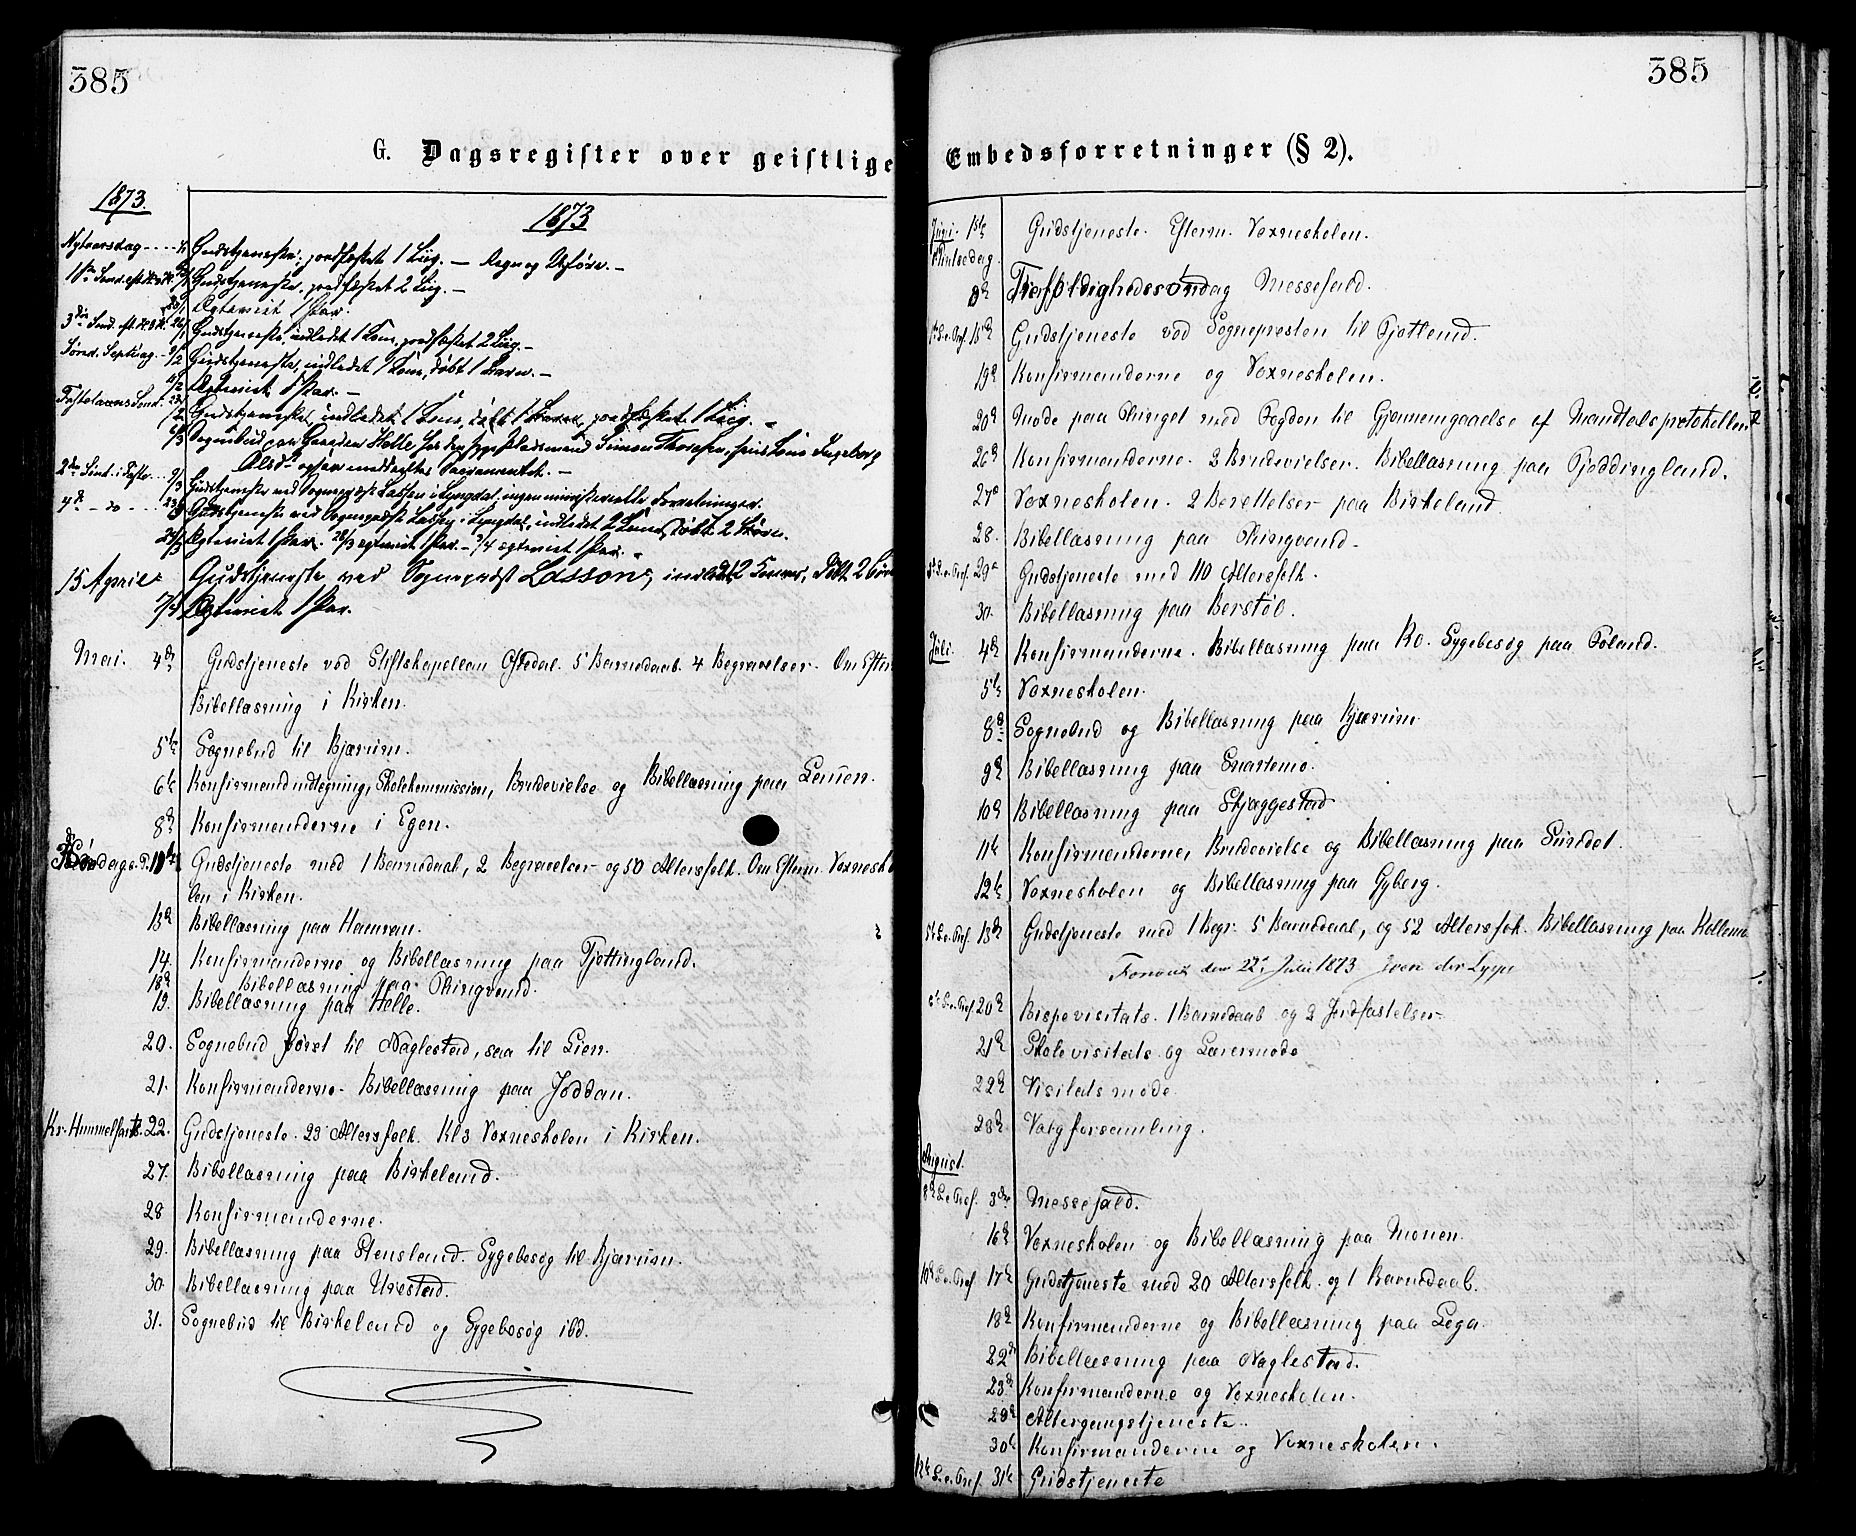 385
385
G. Dagsregister over geistlige Embedsforretninger (§ 2).
1873.
1873
Nytaarsdag - - - - 1/1 Gudstjeneste, jordfæstet 1 Liig. —
Gudstjeneste, jordfæstet 2 Liig. —
Ægteviet 1 Par.
3die Sønd. 26/1 Gudstjeneste, indledet 1 Kone, jordfæstet 2 Liig. —
Sønd. Septuag. - 9/2 Gudstjeneste, indledet 1 Kone, døbt 1 Barn. —
Ægteviet 1 Par. —
Fastelavns Sønd. 23/2 Gudstjeneste, indledet 1 Kone, døbt 1 Barn, jordfæstet 1 Liig. —
Sognebud paa Gaarden Helle hos Simon Thorsen, hans Kone Ingeborg
Olsdr. Sacramentet. —
2den Sønd. i Faste 9/3 Gudstjeneste ved Sognepræst Lassen i Lyngdal, ingen ministerielle Forretninger.
4de - do - - - 23/3 Gudstjeneste ved Sognepræst Lassen i Lyngdal, indledet 2 Koner, døbt 2 Børn.
Ægteviet 1 Par. 28/3 ægteviet 1 Par. - 3/4 ægteviet 1 Par. -
15 April Gudstjeneste ved Sognepræst Lassen, indledet 2 Koner, døbt 2 Børn
Ægteviet 1 Par.
Mai. 4de Gudstjeneste ved Stiftskapellan Oftedal. 5 Barnedaab. 4 Begravelser. Om Efterm
Bibellæsning i Kirken.
5te Sognebud til Bjærum.
6te Konfirmandindtegning, Skolekommission, Brudevielse og Bibellæsning paa Lenen.
8de Konfirmanderne i Egen.
11te Gudstjeneste med 1 Barnedaab, 2 Begravelser og 50 Altersfolk. Om Efterm. Voxnesko
len i Kirken.
13de Bibellæsning paa Hamran.
14. Konfirmanderne og Bibellæsning paa Tjøttingland.
18de Bibellæsning paa Thingvand.
19. Bibellæsning paa Helle.
20. Sognebud først til Naglestad, saa til Lien.
21. Konfirmanderne. Bibellæsning paa Joddan.
Kr. Himmelfarts. 22. Gudstjeneste. 23 Altersfolk. Kl 3 Voxneskolen i Kirken.
27. Bibellæsning paa Birkeland.
28 Konfirmanderne.
29. Bibellæsning paa Stensland. Sygebesøg til Bjærum.
30 Bibellæsning paa Urestad.
31. Sognebud til Birkeland og Sygebesøg ibd.
Juni 1ste Gudstjeneste. Efterm. Voxneskolen.
Pintsedag.
8de Trefoldighedssøndag Messefald.
1ste S. e. Tref. 15de Gudstjeneste ved Sognepresten til Fjotland.
19de Konfirmanderne og Voxneskolen.
20de Møde paa Thinget med Fogden til Gjennemgaaelse af Mandtalsprotokollen
26de Konfirmanderne. 2 Brudevielser. Bibellæsning paa Fjeddingland.
27de Voxneskolen. 2 Berettelser paa Birkeland.
28. Bibellæsning paa Thingvand.
3de S. e. Tref. 29de Gudstjeneste med 110 Altersfolk.
30. Bibellæsning paa Berstøl.
Juli. 4de Konfirmanderne. Bibellæsning paa Ro. Sygebesøg paa Foland.
5te Voxneskolen.
8de Sognebud og Bibellæsning paa Kjærum
9de Bibellæsning paa Snartemo.
10de Bibellæsning paa Skjæggestad
11te Konfirmanderne, Brudevielse og Bibellæsning paa Sundet.
12te Voxneskolen og Bibellæsning paa Gyberg.
5te S. e. Tref. 13de Gudstjeneste med 1 Begr. 5 Barnedaab, og 52 Altersfok. Bibellæsning paa
Forevist den 22de Juli 1873
6te S. e. Tref 20de Bispevisitats. 1 Barnedaab og 2 Jordfæstelser
21de Skolevisitats og Læremøde
22de Visitatsmøde
23de Valgforsamling.
August.
8de S. e. Tref. 3die Messefald.
16de Voxneskolen og Bibellæsning paa Monen.
10de S. e. Tref 17de Gudstjeneste med 20 Altersfolk. og 1 Barnedaab.
18de Konfirmanderne og Bibellæsning paa Lega.
22de Bibellæsning paa Naglestad.
23de Konfirmanderne og Voxneskolen.
29de Altergangstjeneste.
30te Konfirmanderne og Voxneskolen.
12te S. e. Tref. 31te Gudstjeneste